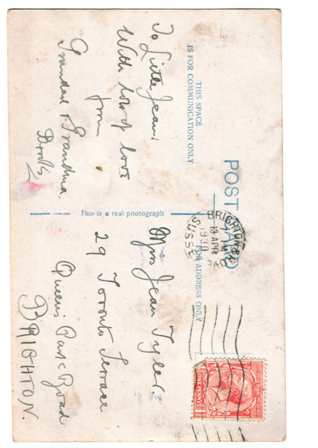 POST CARD
THIS SPACE
IS FOR COMMUNICATION ONLY
FOR ADDRESS ONLY
This is a real photograph
To Little Jean.
With lots of love
from
Grandad & Grandma
BRIGHTON
SUSSEX
13 APR
Miss Jean Tyler.
29 Toronto Terrace
Queens Park Road
BRIGHTON.